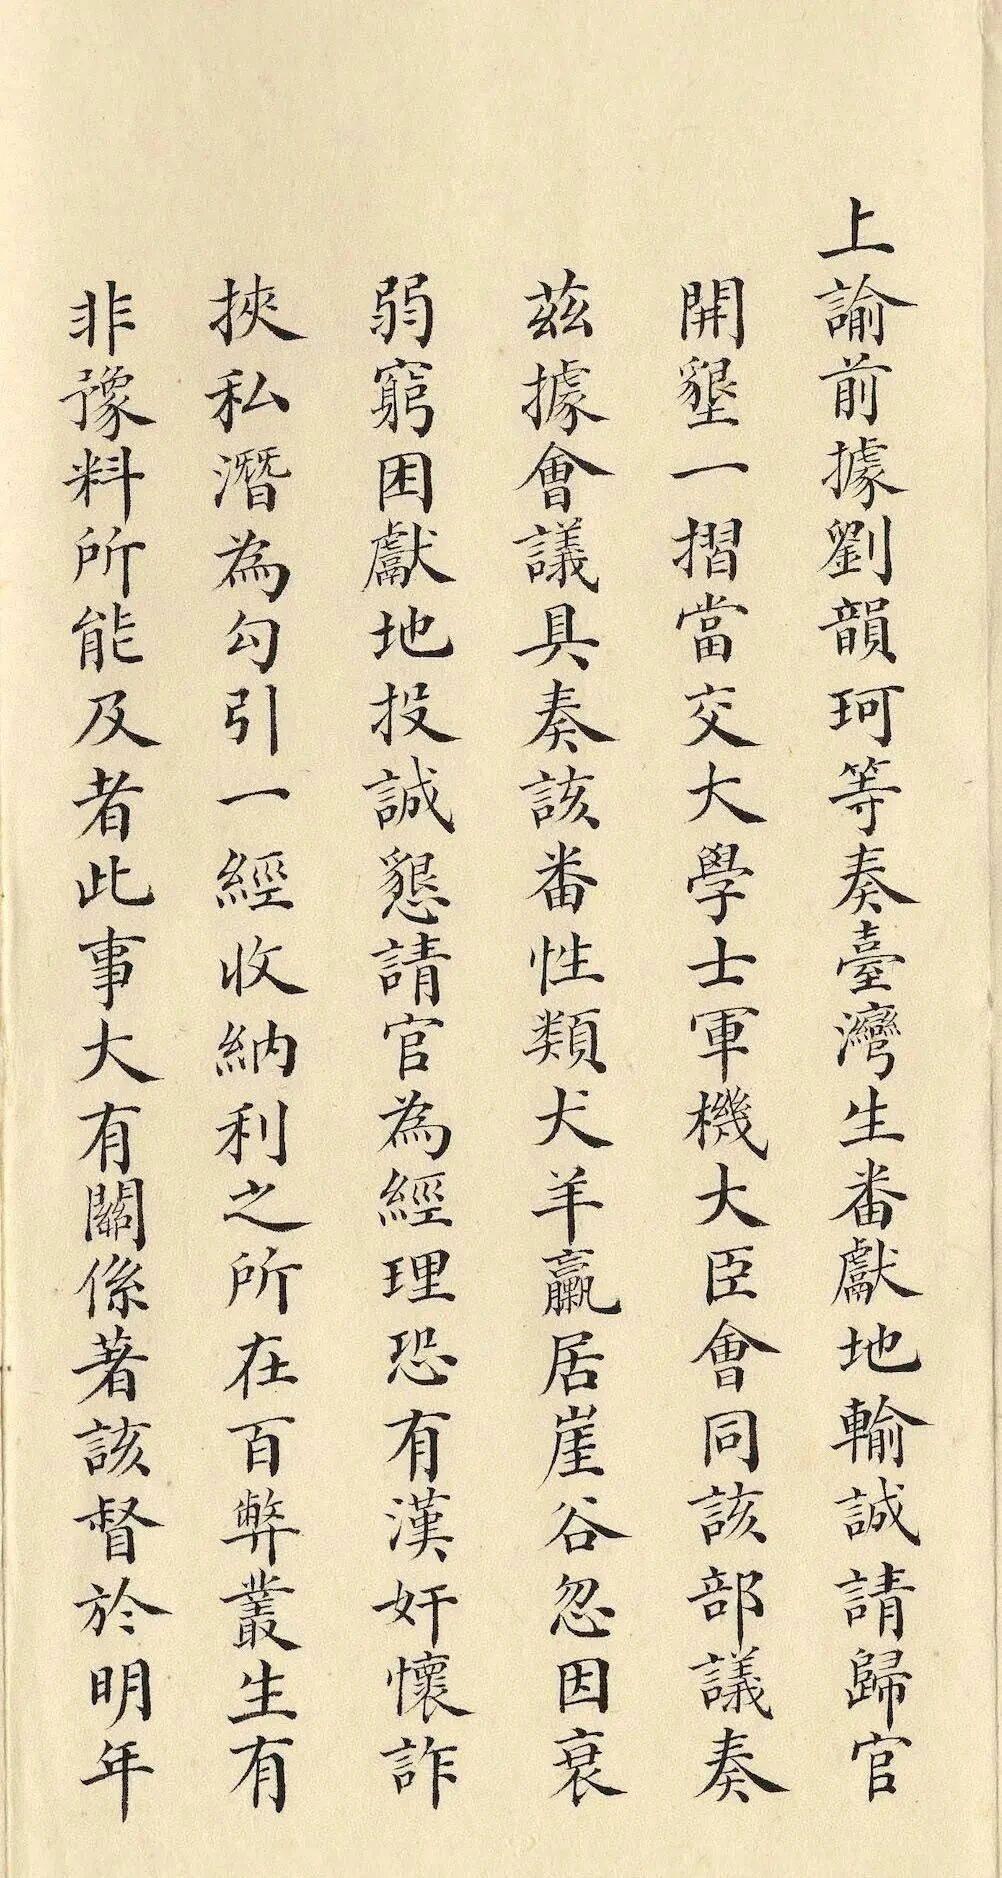 上諭前據劉韻珂等奏臺灣生番獻地輸誠請歸官
開墾一摺當交大學士軍機大臣會同該部議奏
茲據會議具奏該番性類犬羊羸居崖谷忽因衰
弱窮困獻地投誠懇請官為經理恐有漢奸懷詐
挾私潛為勾引一經收納利之所在百弊叢生有
非豫料所能及者此事大有關係著該督於明年